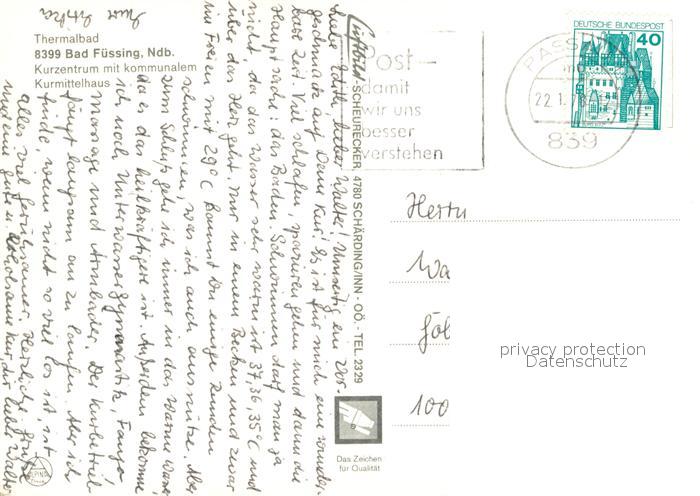 Thermalbad
8399 Bad Füssing, Ndb.
Kurzentrum mit kommunalem
Kurmittelhaus
Liebe Edith, lieber Walter! Umseitig ein Vor-
geschmack auf Deine Kur! Es ist für mich eine wunder-
bare Zeit. Viel schlafen, spazieren gehn und dann die
Hauptsache: das Baden. Schwimmen darf man ja
nicht, da das Wasser sehr warm ist 37, 36, 35°C und
über das Herz geht. Nur in einem Becken und zwar
im Freien mit 29°C kannst Du einige Runden
schwimmen, was ich auch ausnütze. Aber
zum Schluß gehe ich immer in das warme Wasser
da es das heilkräftigere ist. Außerdem bekomme
ich noch Unterwassergymnastik, Fango,
Massage und Armbäder. Der Kurbetrieb
fängt langsam an zu laufen. Aber ich
finde, wenn nicht so viel los ist ist
alles viel Herzliche Grüße
und eine gute u. Kur dir lieber Walter
Eure
Luftbild-SCHEURECKER, 4780 SCHÄRDING/INN - OÖ - TEL. 2329
Post-
damit
wir uns
besser
verstehen
PASSAU
22.1.78
839
DEUTSCHE BUNDESPOST
40
Herrn
Wa
100
privacy protection
Datenschutz
Das Zeichen
für Qualität
ALPINA